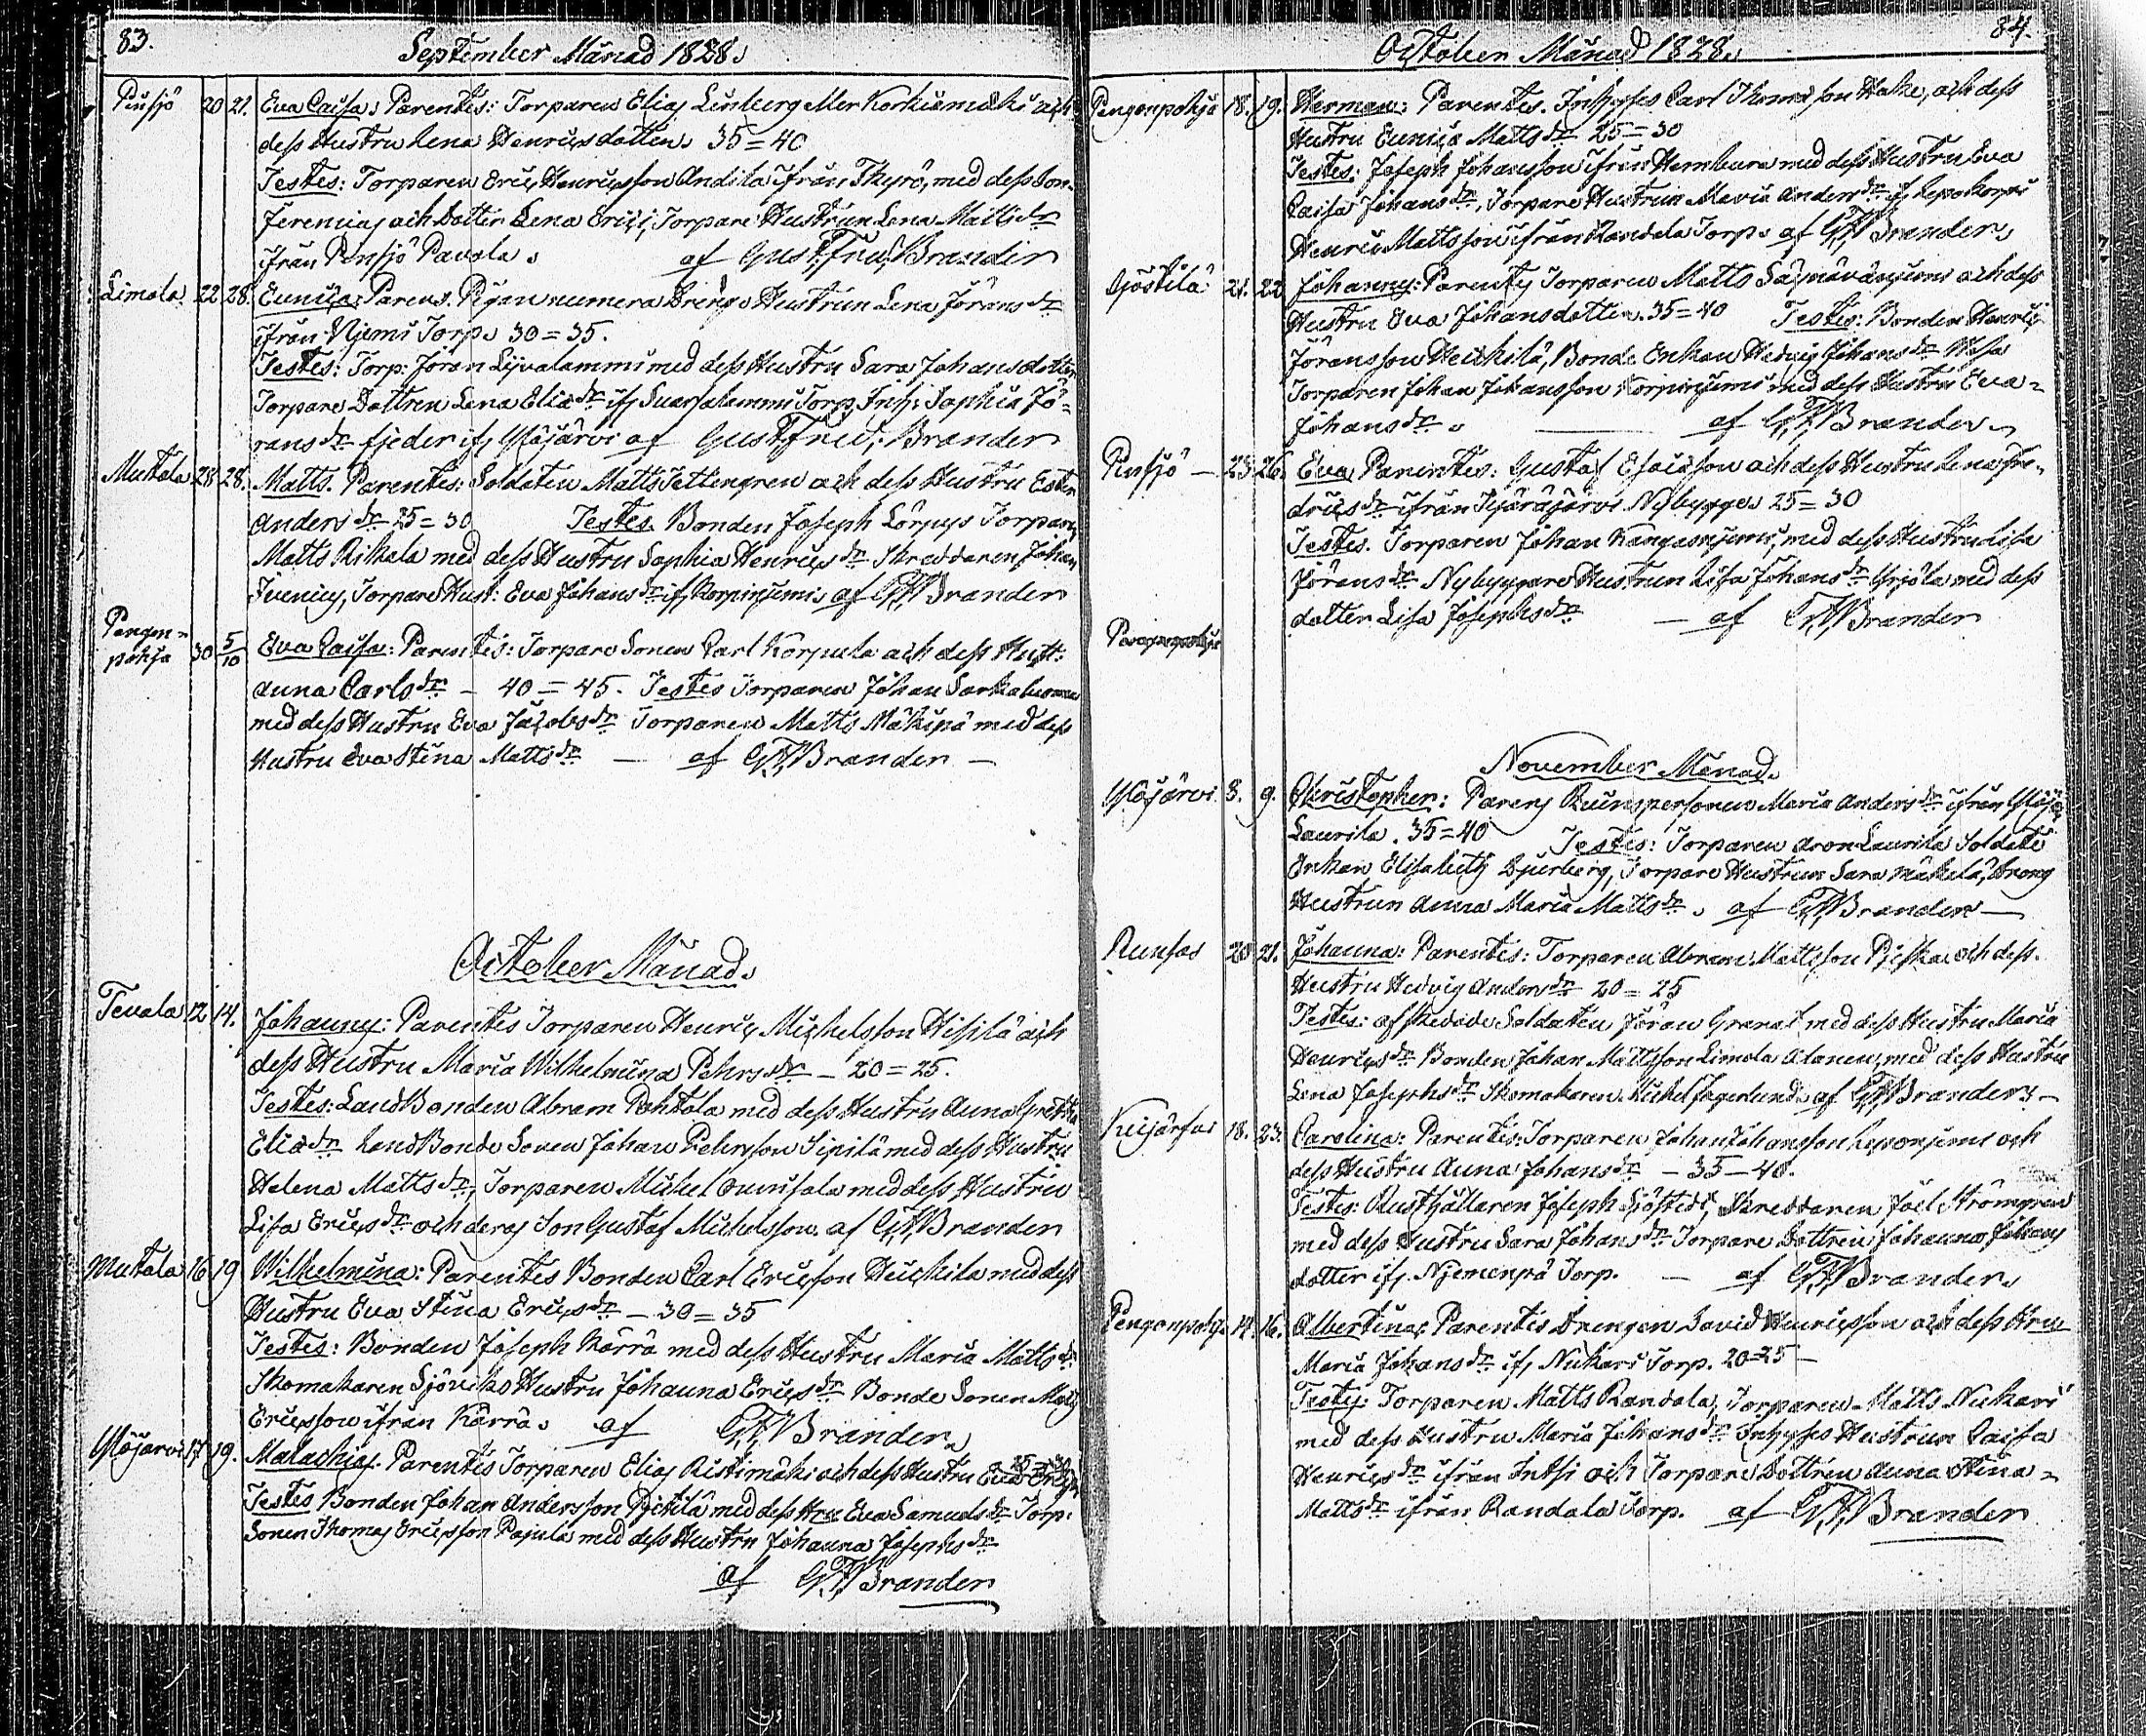 83.
September Månad 1828.
Pinsjö 20 21. Eva Caisa: Parentes: Torparen Elias Linberg eller Korkiamäki och
dess Hustru Lena Henricsdotter. 35=40
Testes: Torparen Eric Henricsson Andila ifrån Thyrö, med dess Son
Jeremias och Dotter Lena Erici, Torpare Hustrun Lena Mattsdr
ifrån Pinsjö Pavola. af Gust. Fred. Brander
Limola 22 28. Eunica: Parens. Pigan numera Drengs Hustrun Lena Jörans dr
ifrån Njemi Torp. 30=35.
Testes: Torp: Jöran Lijvalammi med dess Hustru Sara Johansdotter
Torpare Dottren Lena Elia dr ifr Torp, Inh: Sophia Jö=
rans dr Fjeder ifr Ylöjärvi af Gust. Fred: Brander
Mutala 28 28. Matts. Parentes: Soldaten Matts Tettengren och dess Hustru Ester
Anders dr 25=30 Testes Bonden Joseph Lörpys Torparen
Matts Rikala med dess Hustru Sophia Henrics dr Skreddaren Johan
Juenius, Torpare Hust: Eva Johans dr ifr Korpinjemi af GFBrander
Pengon=
pohja 30 5/10 Eva Caisa: Parentes: Torpare Sonen Carl Korpula och dess Hust:
Anna Carls dr - 40=45. Testes Torparen Johan
med dess Hustru Eva Jacobs dr Torparen Matts Mäkipä med dess
Hustru Eva Stina Matts dr — af GFBrander —
October Månad.
Tevala 12 14. Johannes: Parentes Torparen Henric Michelsson Hisilä och
dess Hustru Maria Wilhelmina Pehrs dr - 20=25.
Testes: LandBonden Abram Pohtola med dess Hustru Anna Gretha
Elia dr LandBonde Sonen Johan Pehrsson Sipilä med dess Hustru
Helena Matts dr, Torparen Michel med dess Hustru
Lisa Erics dr och deras Son Gustaf Michelsson. af GFBrander
Mutala 16 19 Wilhelmina: Parentes Bonden Carl Ericsson Heickila med dess
Hustru Eva Stina Erics dr - 30=35
Testes: Bonden Joseph Kärrä med dess Hustru Maria Matts dr
Skomakaren Sjöviks Hustru Johanna Erics dr Bonde Sonen Matts
Ericsson ifrån Kärrä. af GFBrander
Ylöjärvi 17 19. Malachias. Parentes Torparen Elias Ristimäki och dess Hustru Eva Erics dr
Testes Bonden Johan Andersson Pjetilä med dess Hru Eva Samuels dr Torp:
Sonen Thomas Ericsson Pajula med dess Hustru Johanna Josephs dr
af GFBrander
84.
October Månad 1828.
Pengonpohja 18. 19. Herman: Parentes. Inhyses Carl Thomasson Hake, och dess
Hustru Eunica Matts dr 25=30
Testes: Joseph Johansson ifrån Hernkura med dess Hustru Eva
Caisa Johans dr, Torpare Hustrun Maria Anders dr ifr Lepokorpi
Henric Mattsson ifrån Randala Torp. af GFBrander
Gjöstilä 21. 22 Johannes: Parentes Torparen Matts och dess
Hustru Eva Johansdotter. 35=40 Testes: Bonden Henric
Jöransson Heickilä, Bonde Enkan Hedvig Johans dr
Torparen Johan Johansson Korpinjemi med dess Hustru Eva=
Johans dr. — af GFBrander
Pinsjö — 25 26. Eva. Parentes: Gustaf Esaiasson och dess Hustru Lena Fre=
drics dr ifrån Nybygge. 25=30
Testes. Torparen Johan Kangasnjemi, med dess Hustru Lisa
Jörans dr Nybyggare Hustrun Lisa Johans dr Yrjöla med dess
dotter Lisa Josephs dr — af GFBrander
Pengonpohja
November Månad.
Ylöjärvi 3. 9. Christopher: Parens Quinspersonen Maria Anders dr ifrån Ylöjer
Laurila. 35=40 Testes: Torparen Aron Laurila Soldate
Enkan Elisabeth Djurberg, Torpare Hustrun Sara Mäkelä, Drengs
Hustrun Anna Maria Matts dr. af GFBrander —
Runsas 20 21. Johanna: Parentes: Torparen Abram Mattsson och dess
Hustru Hedvig Anders dr 20=25
Testes: afskedade Soldaten Jöran Granat med dess Hustru Maria
Henrics dr Bonden Johan Mattsson Limola Alanen, med dess Hustru
Lena Josephs dr Skomakaren Michel Jagerlund. af GFBrander. —
Keijärfvi 18. 23. Carolina: Parentes: Torparen Johan Johansson Leponjemi och
dess Hustru Anna Johans dr - 35-40.
Testes: Rusthållaren Joseph Sjöstedt, Skreddaren Joel Strömgren
med dess Hustru Sara Johans dr Torpare Dottren Johanna Johans
dotter ifr. Njemenpä Torp. — af GFBrander
Pengonpohja 14. 16. Albertina: Parentes Drengen David Henricsson och dess Hru
Maria Johans dr ifr Niukari Torp. 20=25 —
Testes: Torparen Matts Randala, Torparen Matts Niukari
med dess Hustru Maria Johans dr Inhyses Hustrun Caisa
Henrics dr ifrån Intti och Torpare Dottren Anna Stina=
Matts dr ifrån Randala Torp. af GFBrander